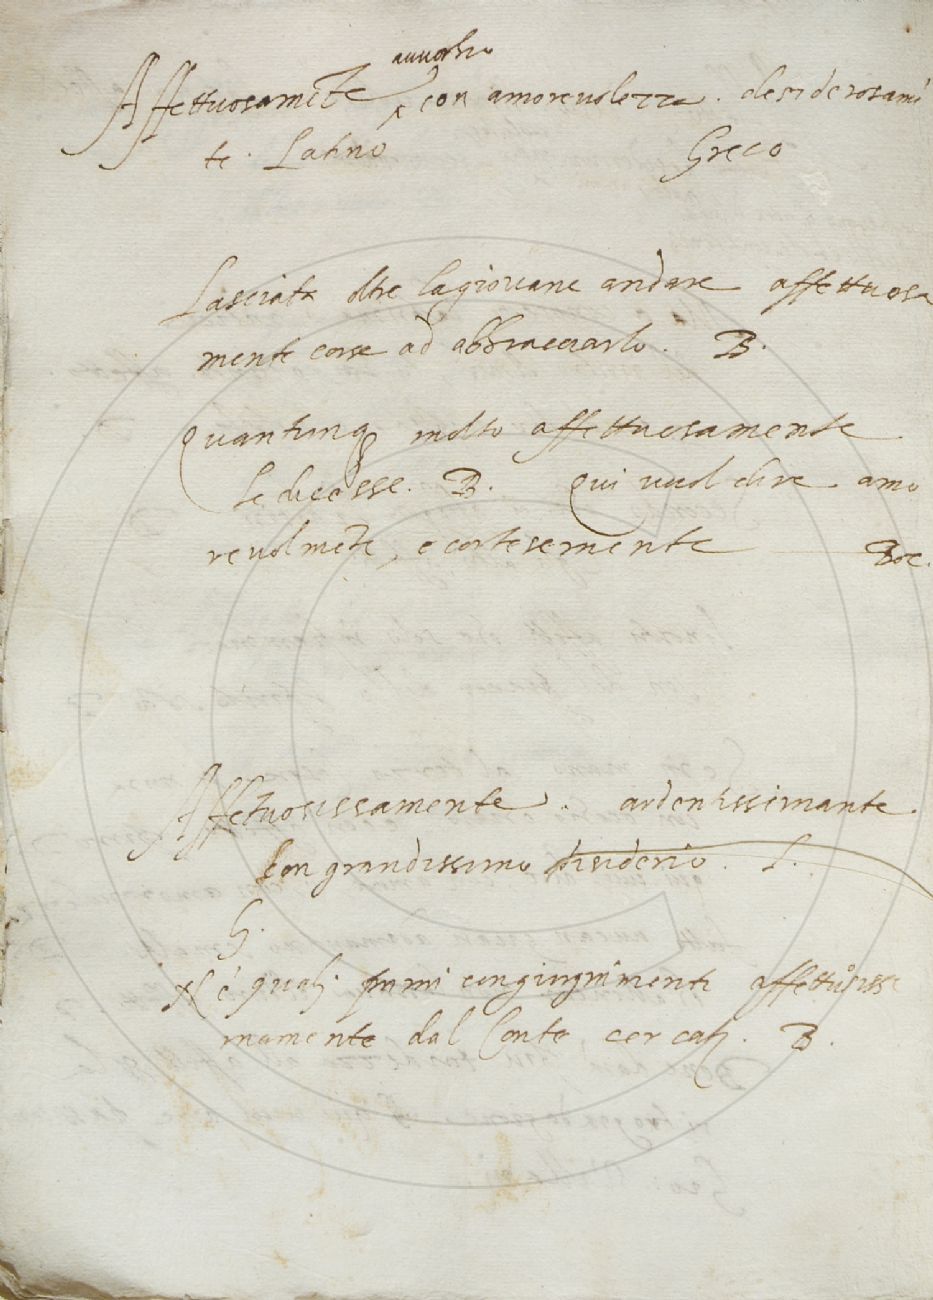 auuerbio
Affettuosamēte con amoreuolezza. desiderosamē
te. Latino Greco
Lasciata oltre la giouane andare affettuosa
mente corse ad abbracciarlo. B.
Quantunq molto affettuosamente
le dicesse. B. Qui vuol dire amo
reuolmēte, e cortesemente Boc.
Affetuosissamente. ardentissimante.
Con grandissimo disiderio. L.
G.
Ne' quali primi congiugnimenti affettuosissi
mamente dal Conte cercati. B.